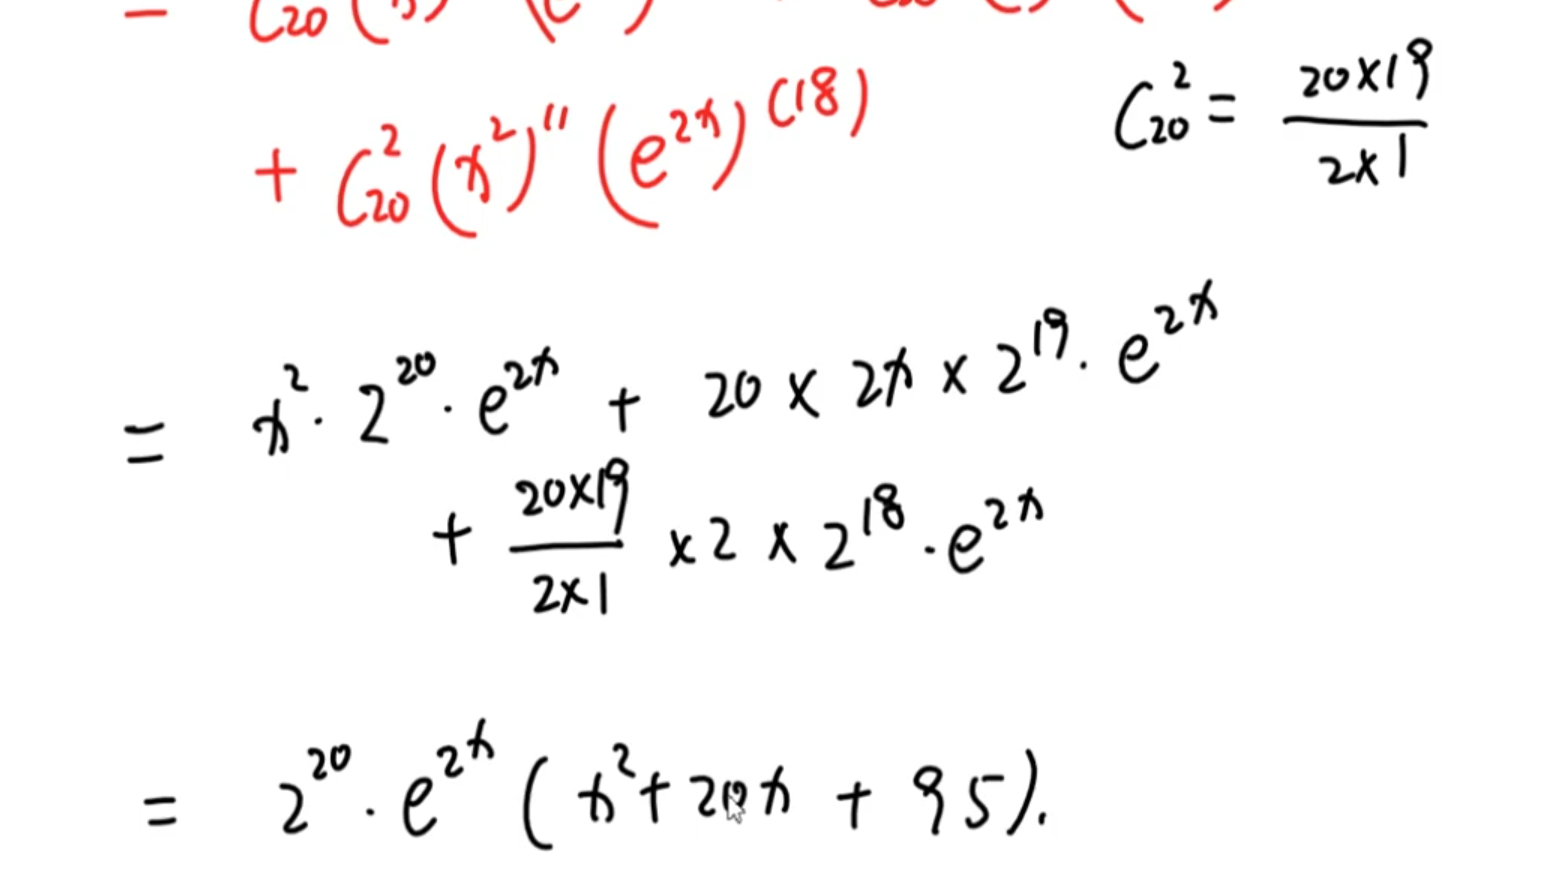 = C₂₀ (x) (e )
+ C₂₀² (x²)'' (e²ˣ)⁽¹⁸⁾
C₂₀² = 20×19 / 2×1
= x² · 2²⁰ · e²ˣ + 20 × 2x × 2¹⁹ · e²ˣ
+ 20×19 / 2×1 × 2 × 2¹⁸ · e²ˣ
= 2²⁰ · e²ˣ (x² + 20x + 95).